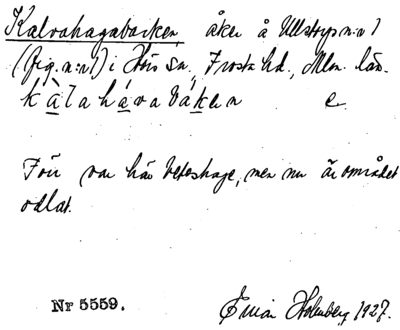 Kalvahagabacken, åker å Ullstorp n:r 1
(fig. n:r 1) i Hörs sn., Frosta hd., Mlm. län.
kàlahávabákən e.
Förr var här beteshage, men nu är området
odlat.
Nr 5559. Einar Holmberg 1927.